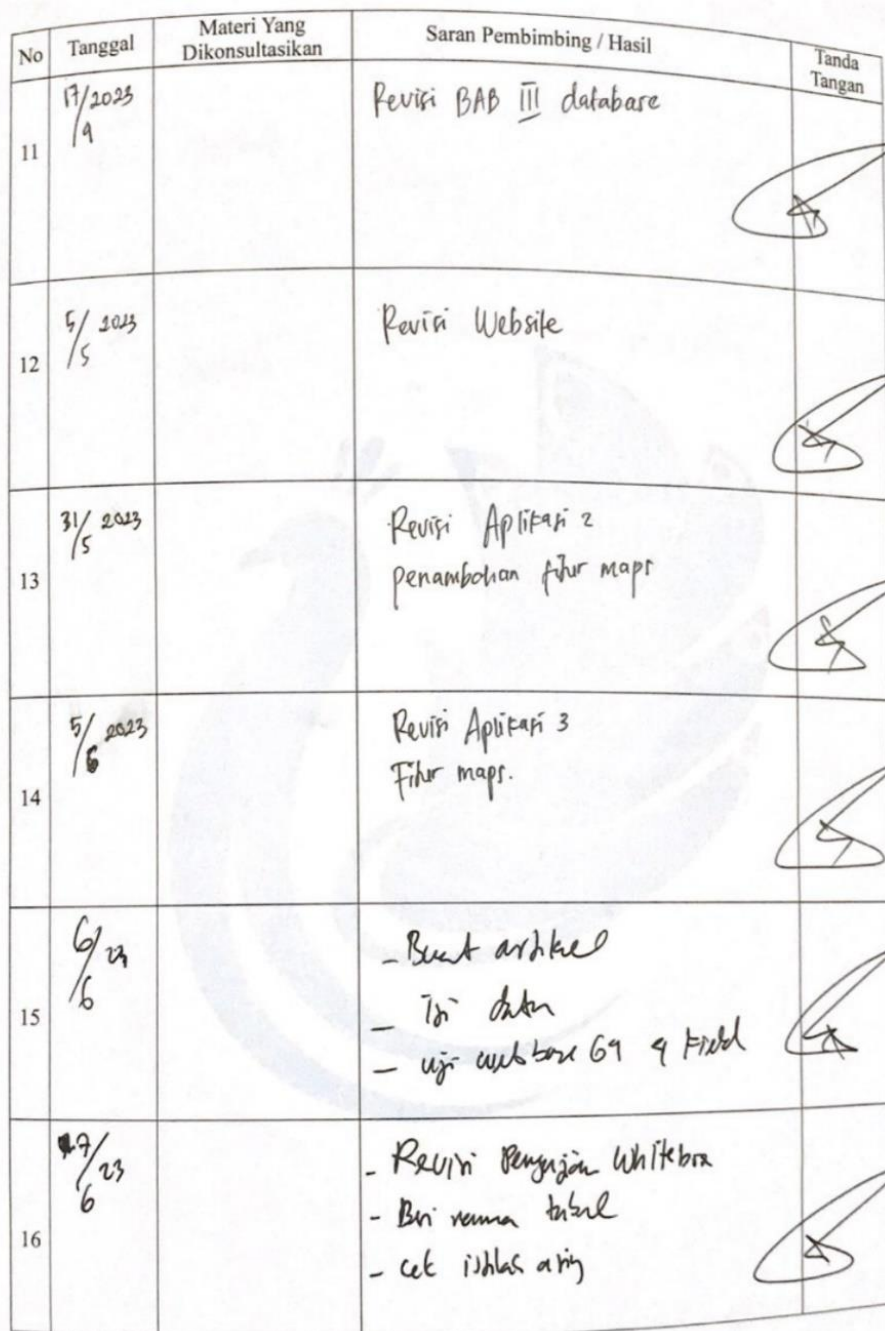 No Tanggal Materi Yang Dikonsultasikan Saran Pembimbing / Hasil Tanda Tangan
11 17/4 2023 Revisi BAB III database
12 5/5 2023 Revisi Website
13 31/5 2023 Revisi Aplikasi 2
penambahan fitur maps
14 5/6 2023 Revisi Aplikasi 3
Fitur maps.
15 6/6 23 - Buat artikel
- Isi data
- uji
16 7/6 23 - Revisi Pengujian Whitebox
- Beri nama tabel
- cek istilah asing